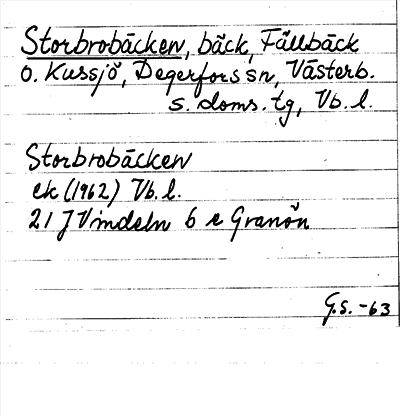 Storbrobäcken, bäck, Fällbäck
O. Kussjö, Degerfors sn, Västerb.
s. doms. tg, Vb. l.
Storbrobäcken
ek (1962) Vb. l.
21 J Vindeln 6 e Granön
G.S. -63